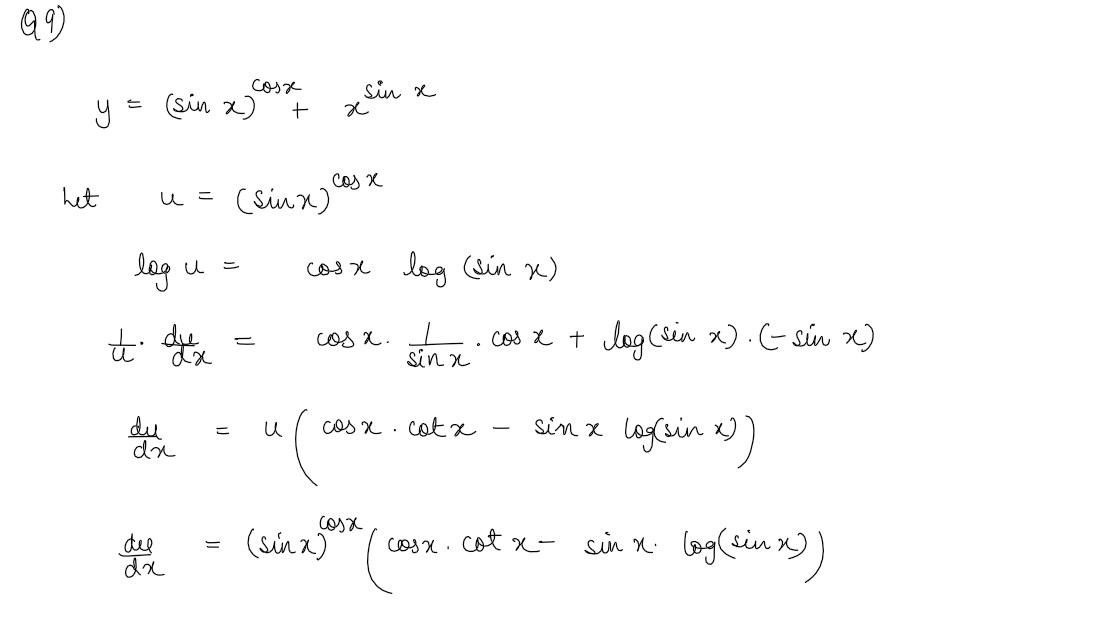 Q9)
y = (sin x)^cosx + x^sin x
Let u = (sinx)^cos x
log u = cos x log (sin x)
1/u · du/dx = cos x · 1/sin x · cos x + log(sin x) · (- sin x)
du/dx = u ( cos x · cot x - sin x log(sin x) )
du/dx = (sin x)^cosx ( cosx · cot x - sin x · log(sin x) )